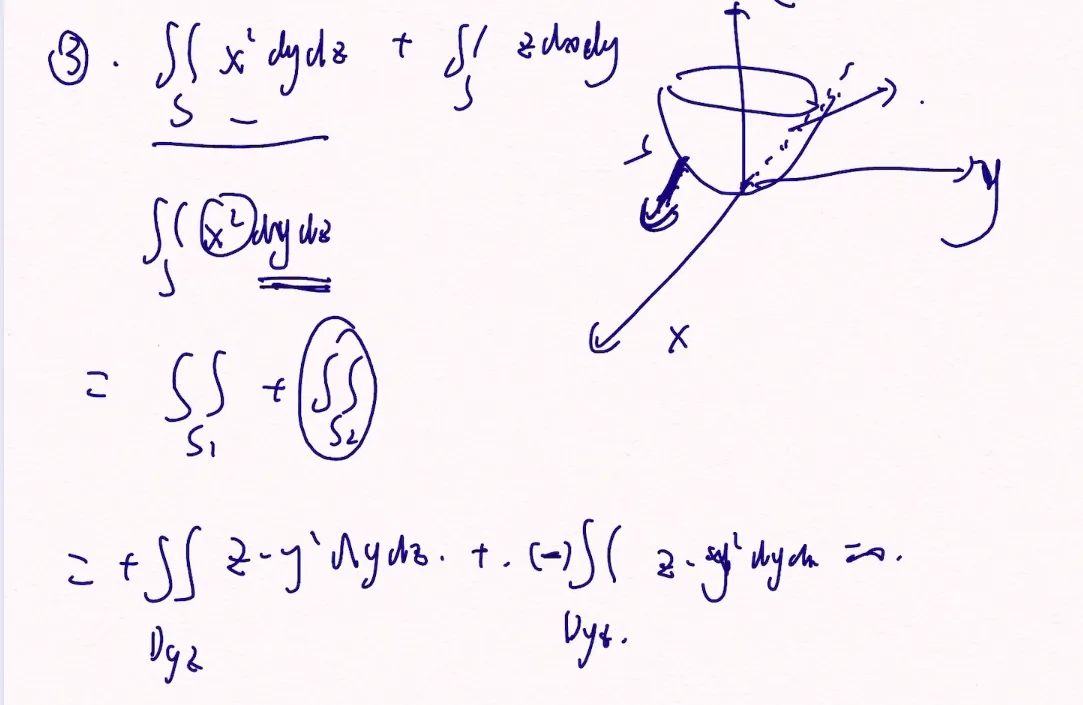 ③. ∬_S x² dydz + ∬_S z dxdy
S
y
x
∬_S x² dydz
= ∬_S1 + ∬_S2
= + ∬_Dyz z-y² dydz. +. (-)∬_Dyz. z-y² dydz = 0.